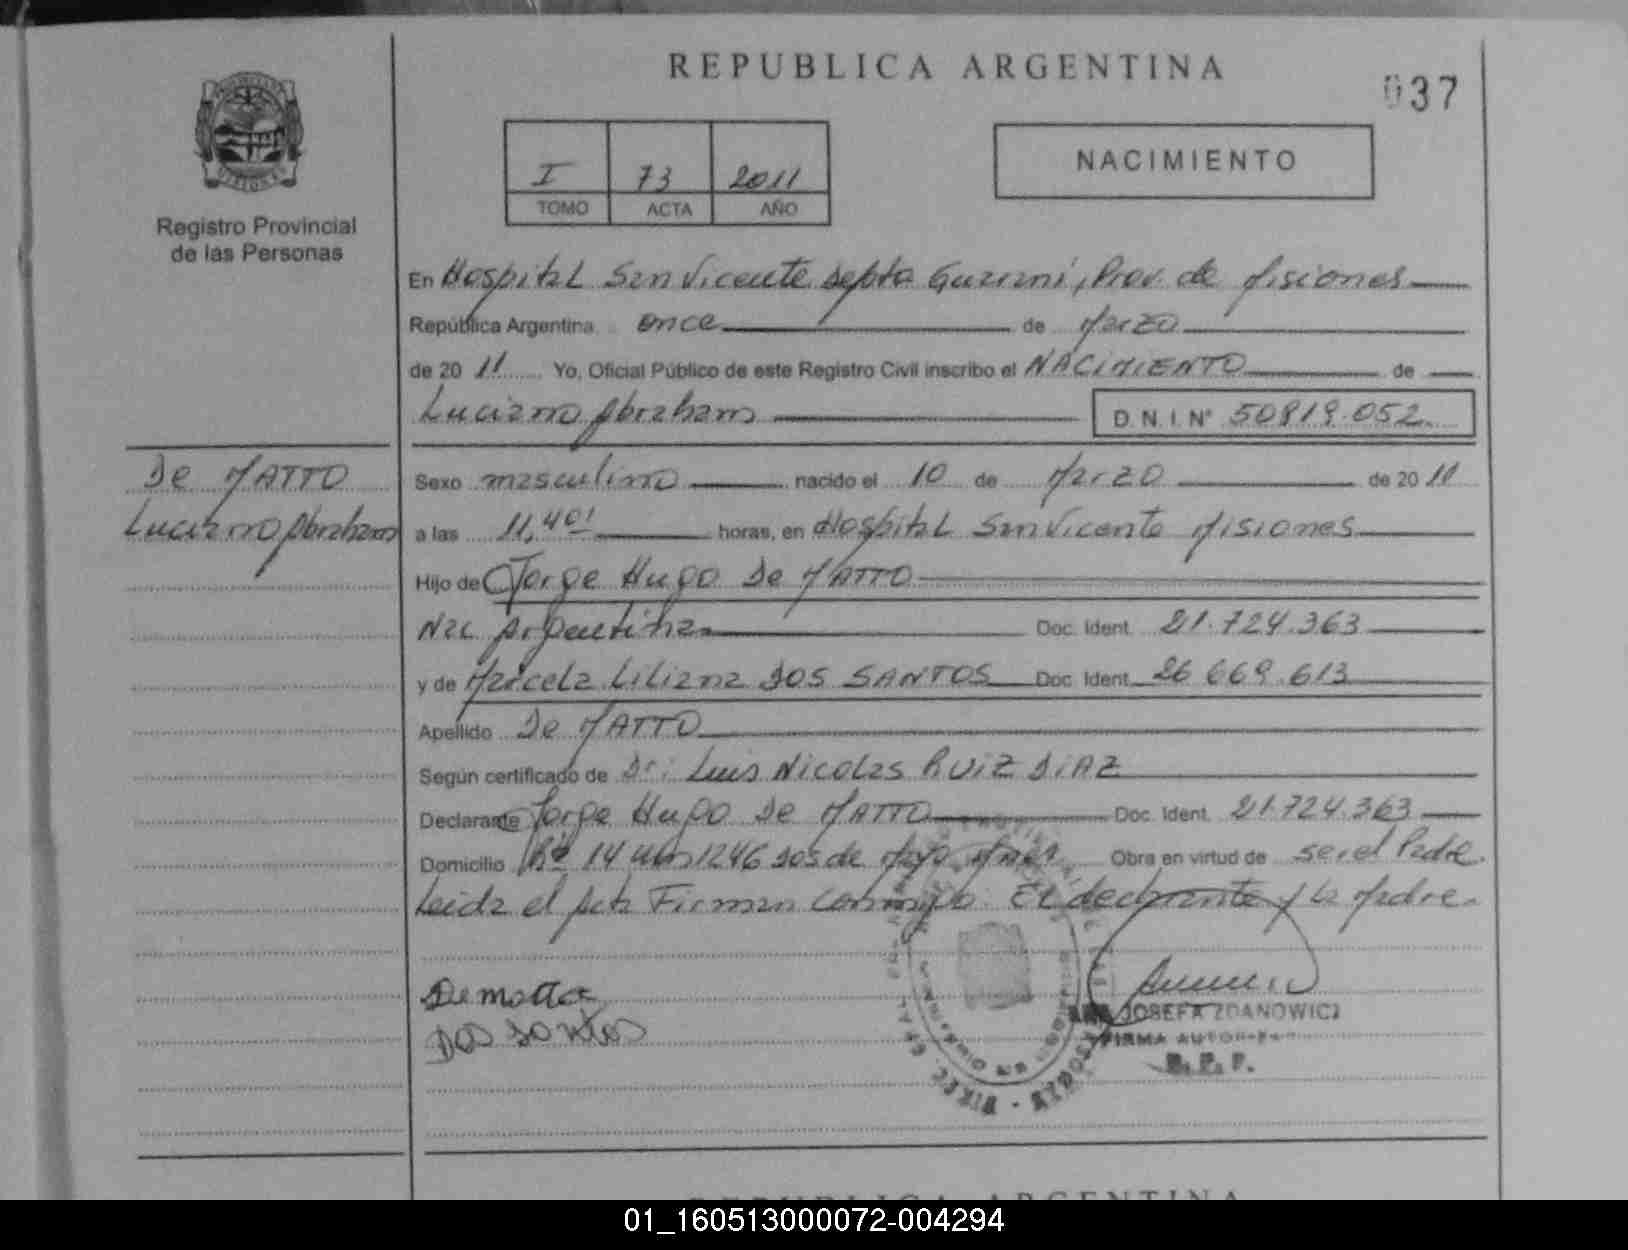 REPUBLICA ARGENTINA
037
I 73 2011
TOMO ACTA AÑO
NACIMIENTO
Registro Provincial
de las Personas
En Hospital San Vicente Depto Guarani, Prov. de Misiones
República Argentina once de Marzo
de 20 11 Yo, Oficial Público de este Registro Civil inscribo el NACIMIENTO de
Luciano Abraham D.N.I. Nº 50819.052
De MATTO
Luciano Abraham
Sexo masculino nacido el 10 de Marzo de 20 11
a las 11,40' horas, en Hospital San Vicente Misiones
Hijo de Jorge Hugo De MATTO
Nac Argentina Doc. Ident. 21.724.363
y de Marcela Liliana DOS SANTOS Doc. Ident. 26 669.613
Apellido De MATTO
Según certificado de Dr: Luis Nicolas RUIZ DIAZ
Declarante Jorge Hugo De MATTO Doc. Ident. 21.724.363
Domicilio 14 km 1246 Dos de Mayo Obra en virtud de ser el Padre.
Leida el Acta Firman conmigo El declarante y la Madre.
Dematto
Dos santos
JOSEFA ZDANOWICZ
FIRMA
REPUBLICA ARGENTINA
01_160513000072-004294